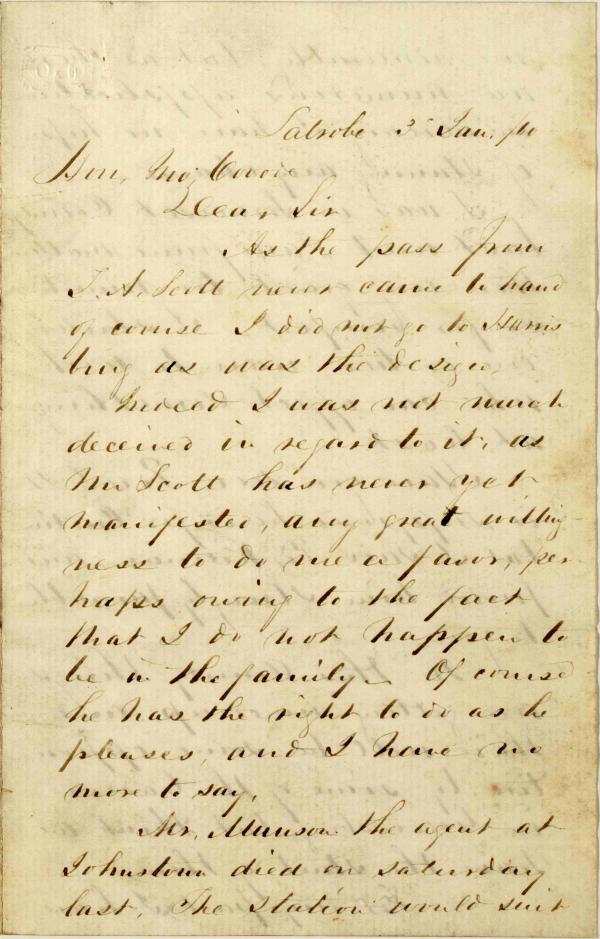 Latrobe 3d Jan, 60
Hon, Jno, Covode
Dear Sir
As the pass from
T. A. Scott never came to hand
of course I did not go to Harris
burg as was the design,
Indeed I was not much
deceived in regard to it, as
Mr Scott has never yet
manifested, any great willing-
ness to do me a favor, per
haps owing to the fact
that I do not happen to
be in the family. Of course
he has the right to do as he
pleases, and I have no
more to say,
Mr, Munson the agent at
Johnstown died on Saturday
last, The Station would suit